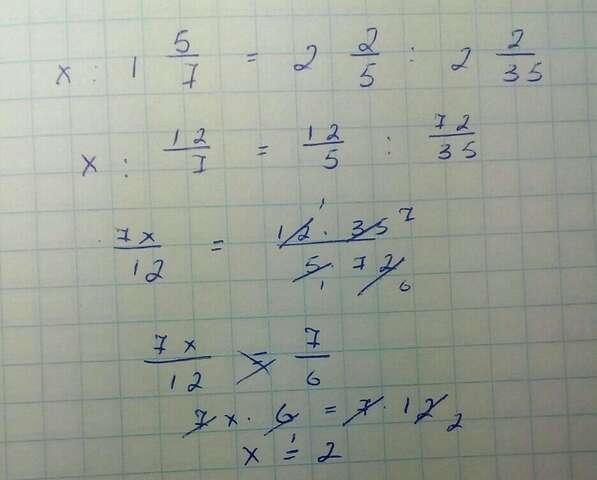 x : 1 5/7 = 2 2/5 : 2 2/35
x : 12/7 = 12/5 : 72/35
7x/12 = 12 · 35/5 · 72 1 7 1 6
7x/12 = 7/6
7x · 6 = 7 · 12 1 2
x = 2